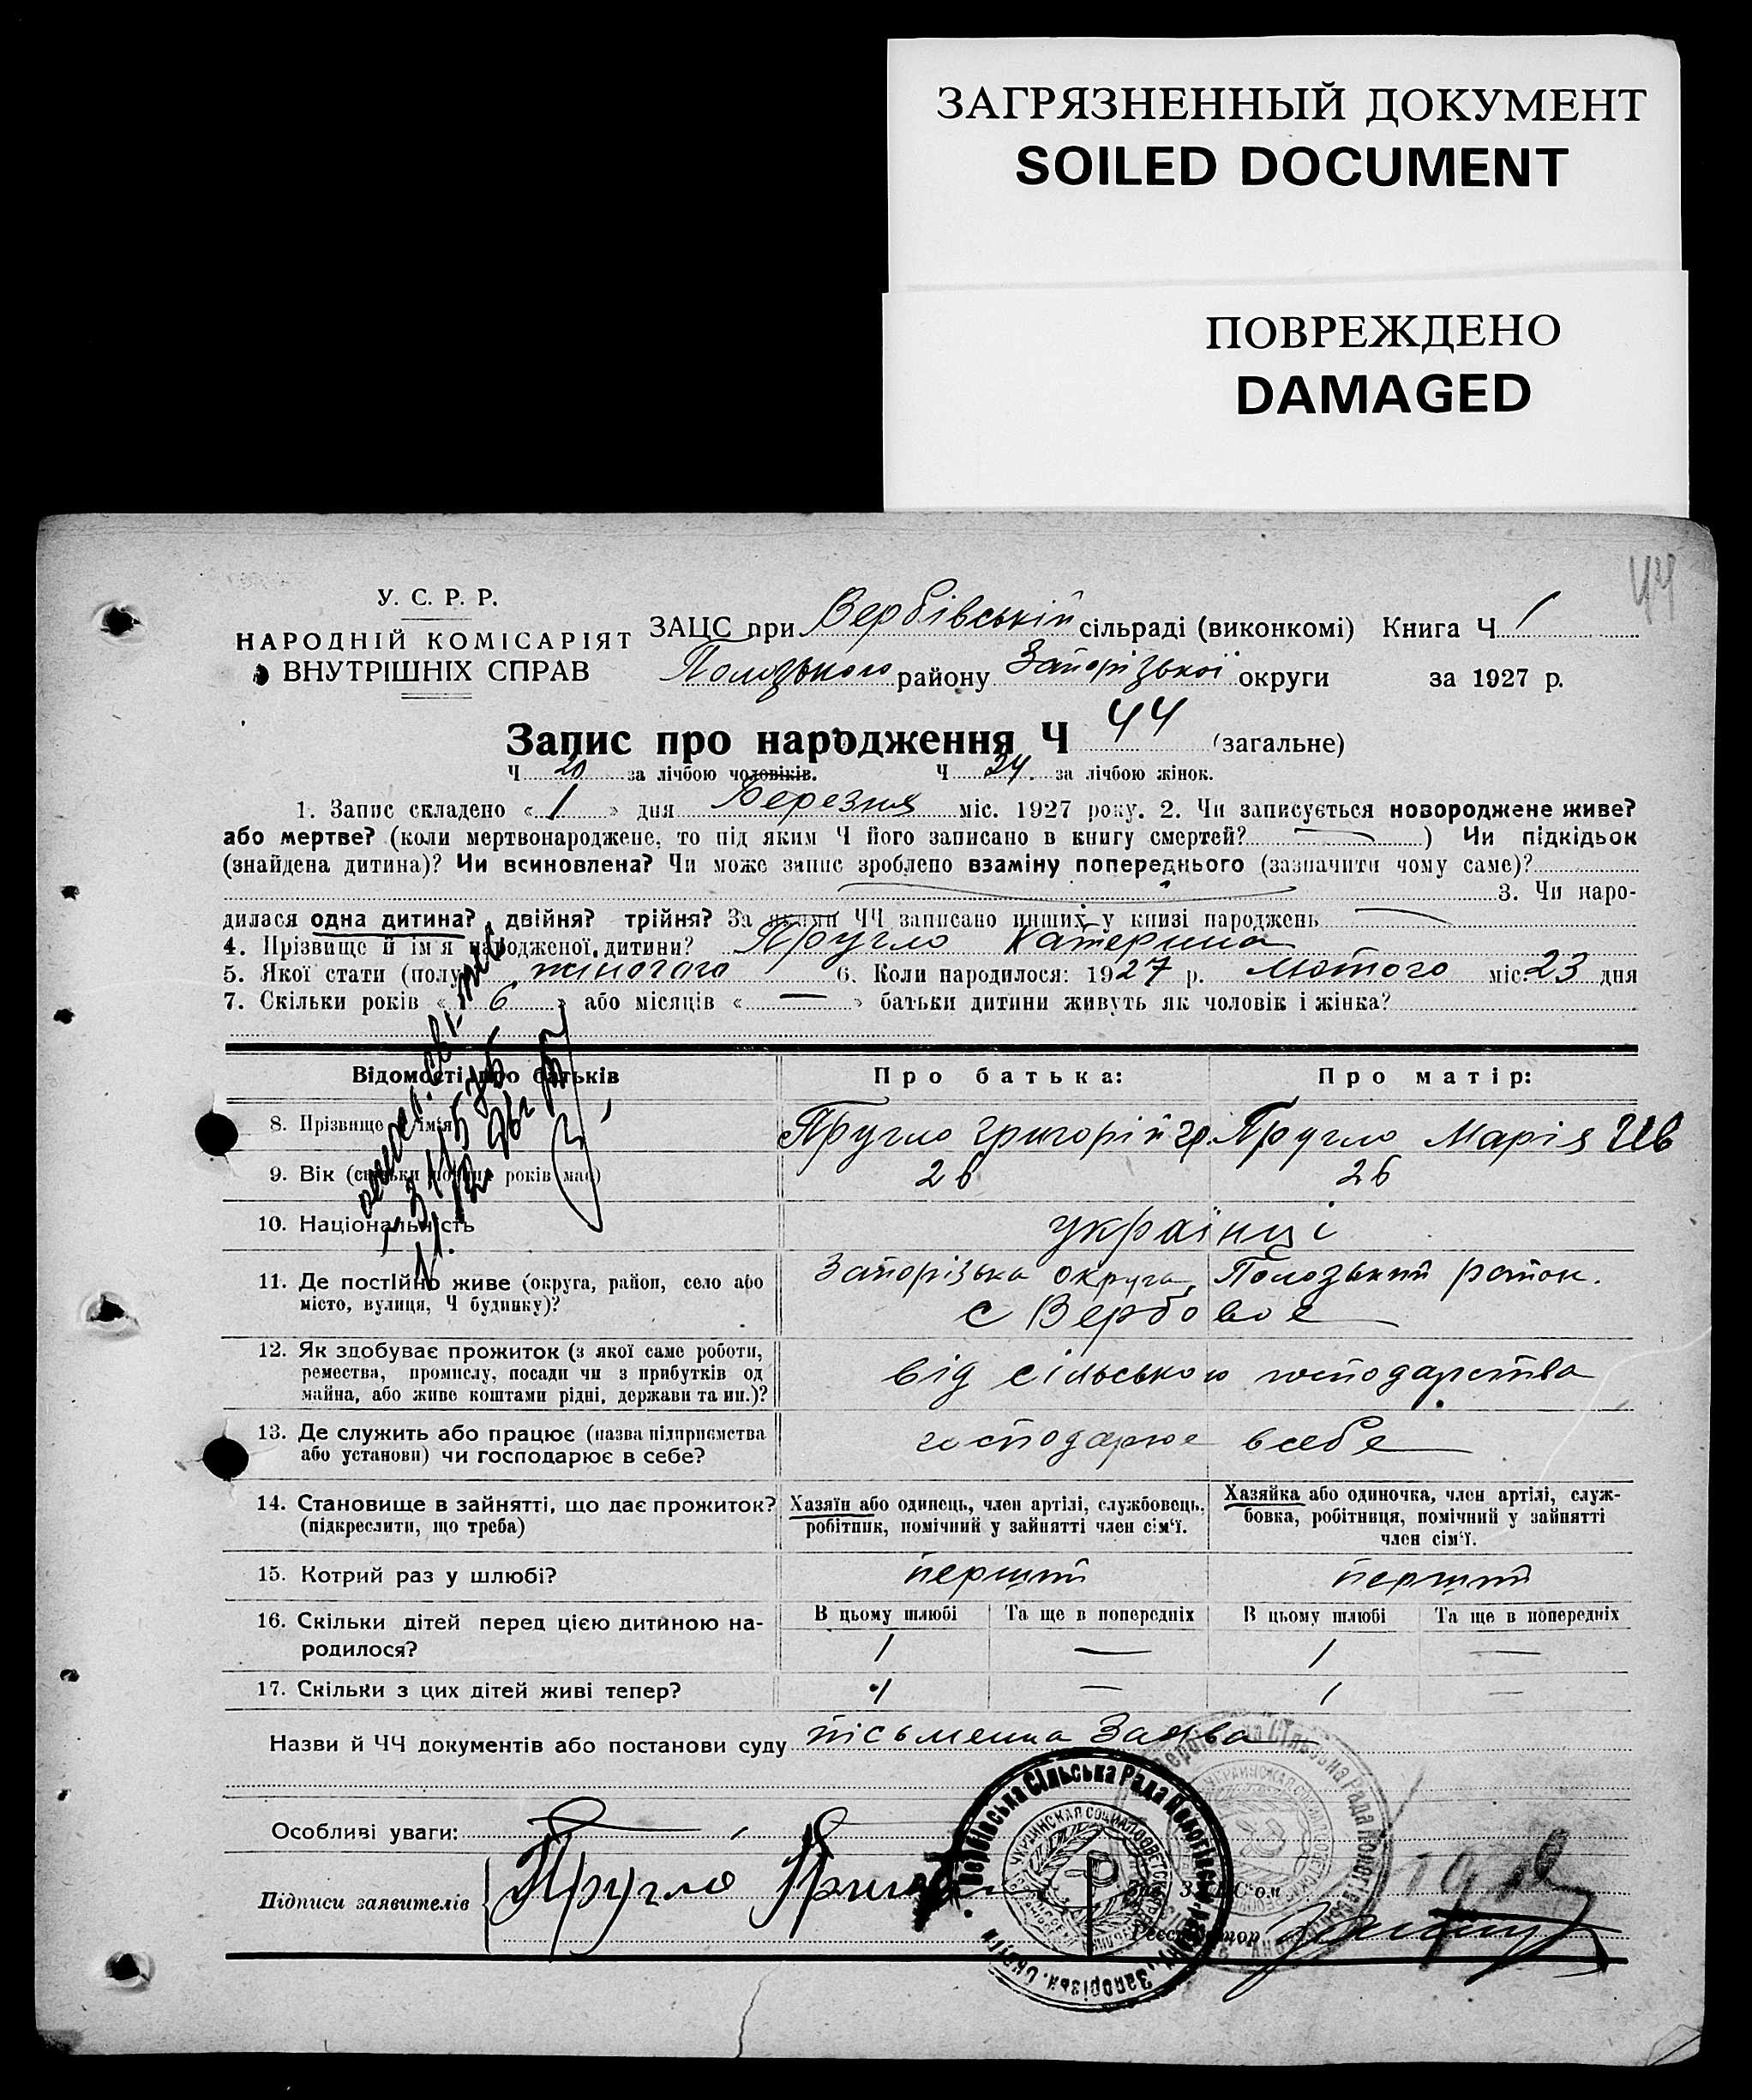 ЗАГРЯЗНЕННЫЙ ДОКУМЕНТ
SOILED DOCUMENT
ПОВРЕЖДЕНО
DAMAGED
44
У. С. Р. Р.
НАРОДНІЙ КОМІСАРІЯТ
ВНУТРІШНІХ СПРАВ
ЗАЦС при Вербівській сільраді (виконкомі) Книга Ч 1
Пологського району Запорізької округи за 1927 р.
Запис про народження Ч 44 (загальне)
Ч 20 за лічбою чоловіків. Ч 24. за лічбою жінок.
1. Запис складено « 1 » дня Березня міс. 1927 року. 2. Чи записується новороджене живе?
або мертве? (коли мертвонароджене, то під яким Ч його записано в книгу смертей? — ) Чи підкідьок
(знайдена дитина)? Чи всиновлена? Чи може запис зроблено взаміну попереднього (зазначити чому саме)?
3. Чи наро-
дилася одна дитина? двійня? трійня? За якими ЧЧ записано инших у книзі народжень —
4. Прізвище й ім'я народженої дитини? Пругло Катерина
5. Якої стати (полу) жіночого 6. Коли народилося: 1927 р. Лютого міс. 23 дня
7. Скільки років « 6 » або місяців « — » батьки дитини живуть як чоловік і жінка?
Відомості про батьків
Про батька:
Про матір:
8. Прізвище й ім'я
Пругло Григорій Гр.
Пругло Марія Ив
9. Вік (скільки повних років має)
26
26
10. Національність
українці
11. Де постійно живе (округа, район, село або
місто, вулиця, Ч будинку)?
Запорізька округа, Пологзький район.
с Вербовое
12. Як здобуває прожиток (з якої саме роботи,
ремества, промислу, посади чи з прибутків од
майна, або живе коштами рідні, держави та ин.)?
від сільського господарства
13. Де служить або працює (назва підприємства
або установи) чи господарює в себе?
господарює всебе
14. Становище в зайнятті, що дає прожиток?
(підкреслити, що треба)
Хазяїн або одинець, член артілі, службовець,
робітник, помічний у зайнятті член сім'ї.
Хазяйка або одиночка, член артілі, служ-
бовка, робітниця, помічний у зайнятті
член сім'ї.
15. Котрий раз у шлюбі?
перший
перший
16. Скільки дітей перед цією дитиною на-
родилося?
В цьому шлюбі Та ще в попередніх В цьому шлюбі Та ще в попередніх
1 — 1 —
17. Скільки з цих дітей живі тепер?
1 — 1 —
Назви й ЧЧ документів або постанови суду письменна Заява
Особливі уваги:
Підписи заявителів Пругло
Зав. ЗАГС'ом
Реєстратор
Вербівська Сільська Рада Пологівськ. району, Запорізьк. Округи